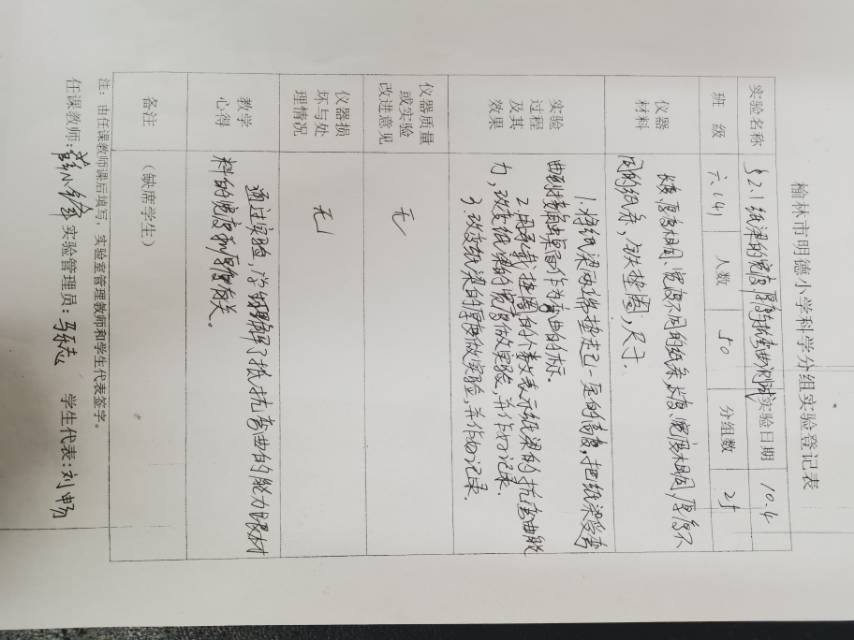 榆林市明德小学科学分组实验登记表
实验名称 §2.1纸梁的宽度厚度与抗弯曲测试 实验日期 10.4
班 级 六.(4) 人数 50 分组数 25
仪器材料 长度,厚度相同、宽度不同的纸条 长度、宽度相同,厚度不
同的纸条,铁垫圈,尺子.
实验过程及其效果 1.将纸梁两端垫起一定的高度,把纸梁受弯
曲到接触桌面作为弯曲的标.
2.用承载垫圈的个数表示纸梁的抗弯曲能
力,改变纸梁的宽度做实验,并作好记录.
3.改变纸梁的厚度做实验,并作好记录.
仪器质量或实验改进意见 无
仪器损坏与处理情况 无
教学心得 通过实验,学生理解了抵抗弯曲的能力跟材
料的宽度和厚度有关。
备注 (缺席学生)
注:由任课教师课后填写,实验室管理教师和学生代表签字。
任课教师: 实验管理员: 学生代表:刘畅